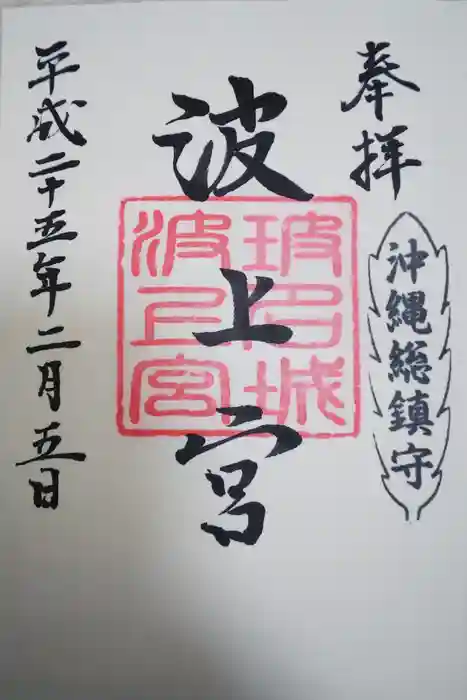 奉拝
沖縄総鎮守
波上宮
波上宮
平成二十五年二月五日